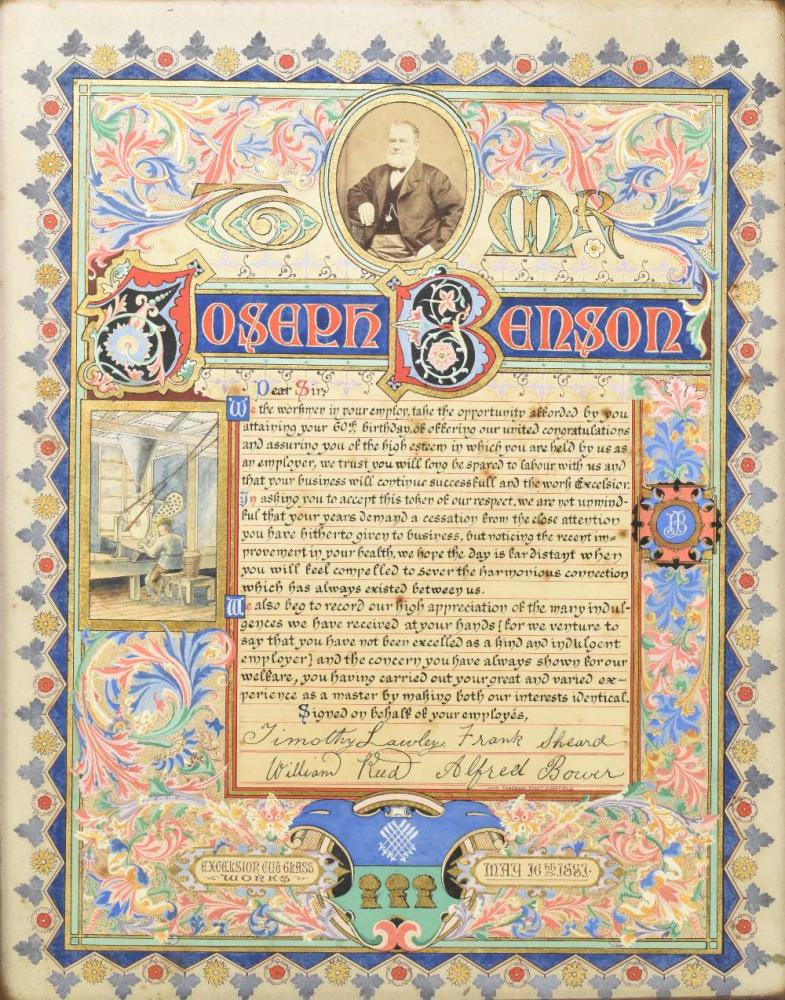 To Mr
Joseph Benson
Dear Sir,
We the workmen in your employ, take the opportunity afforded by you
attaining your 60th birthday, of offering our united congratulations
and assuring you of the high esteem in which you are held by us as
an employer, we trust you will long be spared to labour with us and
that your business will continue successfull and the work Excelsior.
In asking you to accept this token of our respect, we are not unmind-
ful that your years demand a cessation from the close attention
you have hitherto given to business, but noticing the recent im=
provement in your health, we hope the day is far distant when
you will feel compelled to sever the harmonious connection
which has always existed between us.
We also beg to record our high appreciation of the many indul-
gences we have received at your hands {for we venture to
say that you have not been excelled as a kind and indulgent
employer} and the concern you have always shown for our
welfare, you having carried out your great and varied ex-
perience as a master by making both our interests identical.
Signed on behalf of your employés,
Timothy Lawley. Frank Sheard
William Reed Alfred Bower
EXCELSIOR CUT GLASS
WORKS
MAY 16th 1881.
JB